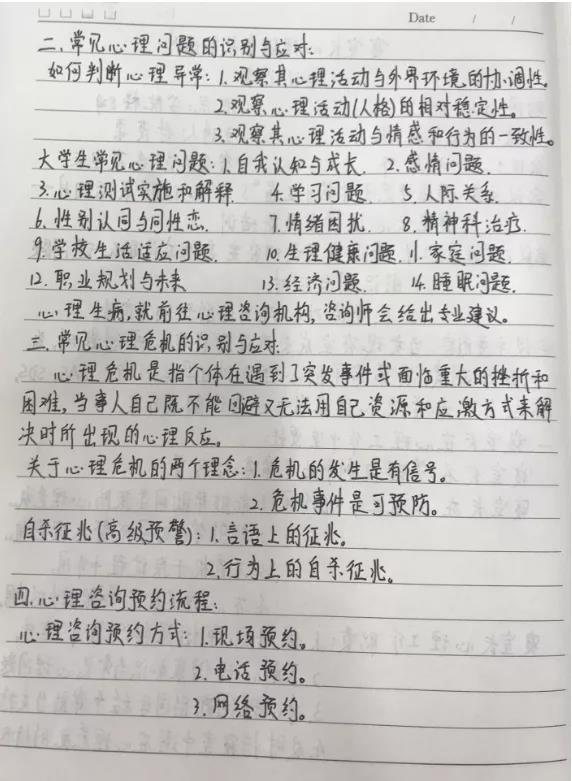 Date / /
二、常见心理问题的识别与应对:
如何判断心理异常:1.观察其心理活动与外界环境的协调性。
2.观察心理活动(人格)的相对稳定性。
3.观察其心理活动与情感和行为的一致性。
大学生常见心理问题:1.自我认知与成长. 2.感情问题.
3.心理测试实施和解释. 4.学习问题. 5.人际关系.
6.性别认同与同性恋. 7.情绪困扰. 8.精神科治疗.
9.学校生活适应问题. 10.生理健康问题. 11.家庭问题.
12.职业规划与未来 13.经济问题. 14.睡眠问题.
心理生病,就前往心理咨询机构,咨询师会给出专业建议。
三、常见心理危机的识别与应对:
心理危机是指个体在遇到了突发事件或面临重大的挫折和
困难,当事人自己既不能回避又无法用自己资源和应激方式来解
决时所出现的心理反应。
关于心理危机的两个理念:1.危机的发生是有信号。
2.危机事件是可预防。
自杀征兆(高级预警):1.言语上的征兆。
2.行为上的自杀征兆。
四.心理咨询预约流程:
心理咨询预约方式:1.现场预约。
2.电话预约。
3.网络预约。